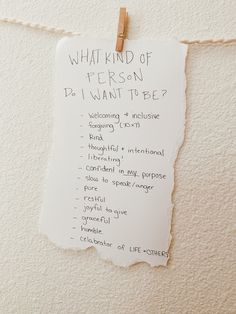 WHAT KIND OF
PERSON
Do I WANT TO BE?
- welcoming + inclusive
- forgiving (70x7)
- kind
- thoughtful + intentional
- liberating
- confident in my purpose
- slow to speak/anger
- pure
- restful
- joyful to give
- graceful
- humble
- celebrator of LIFE + OTHERS